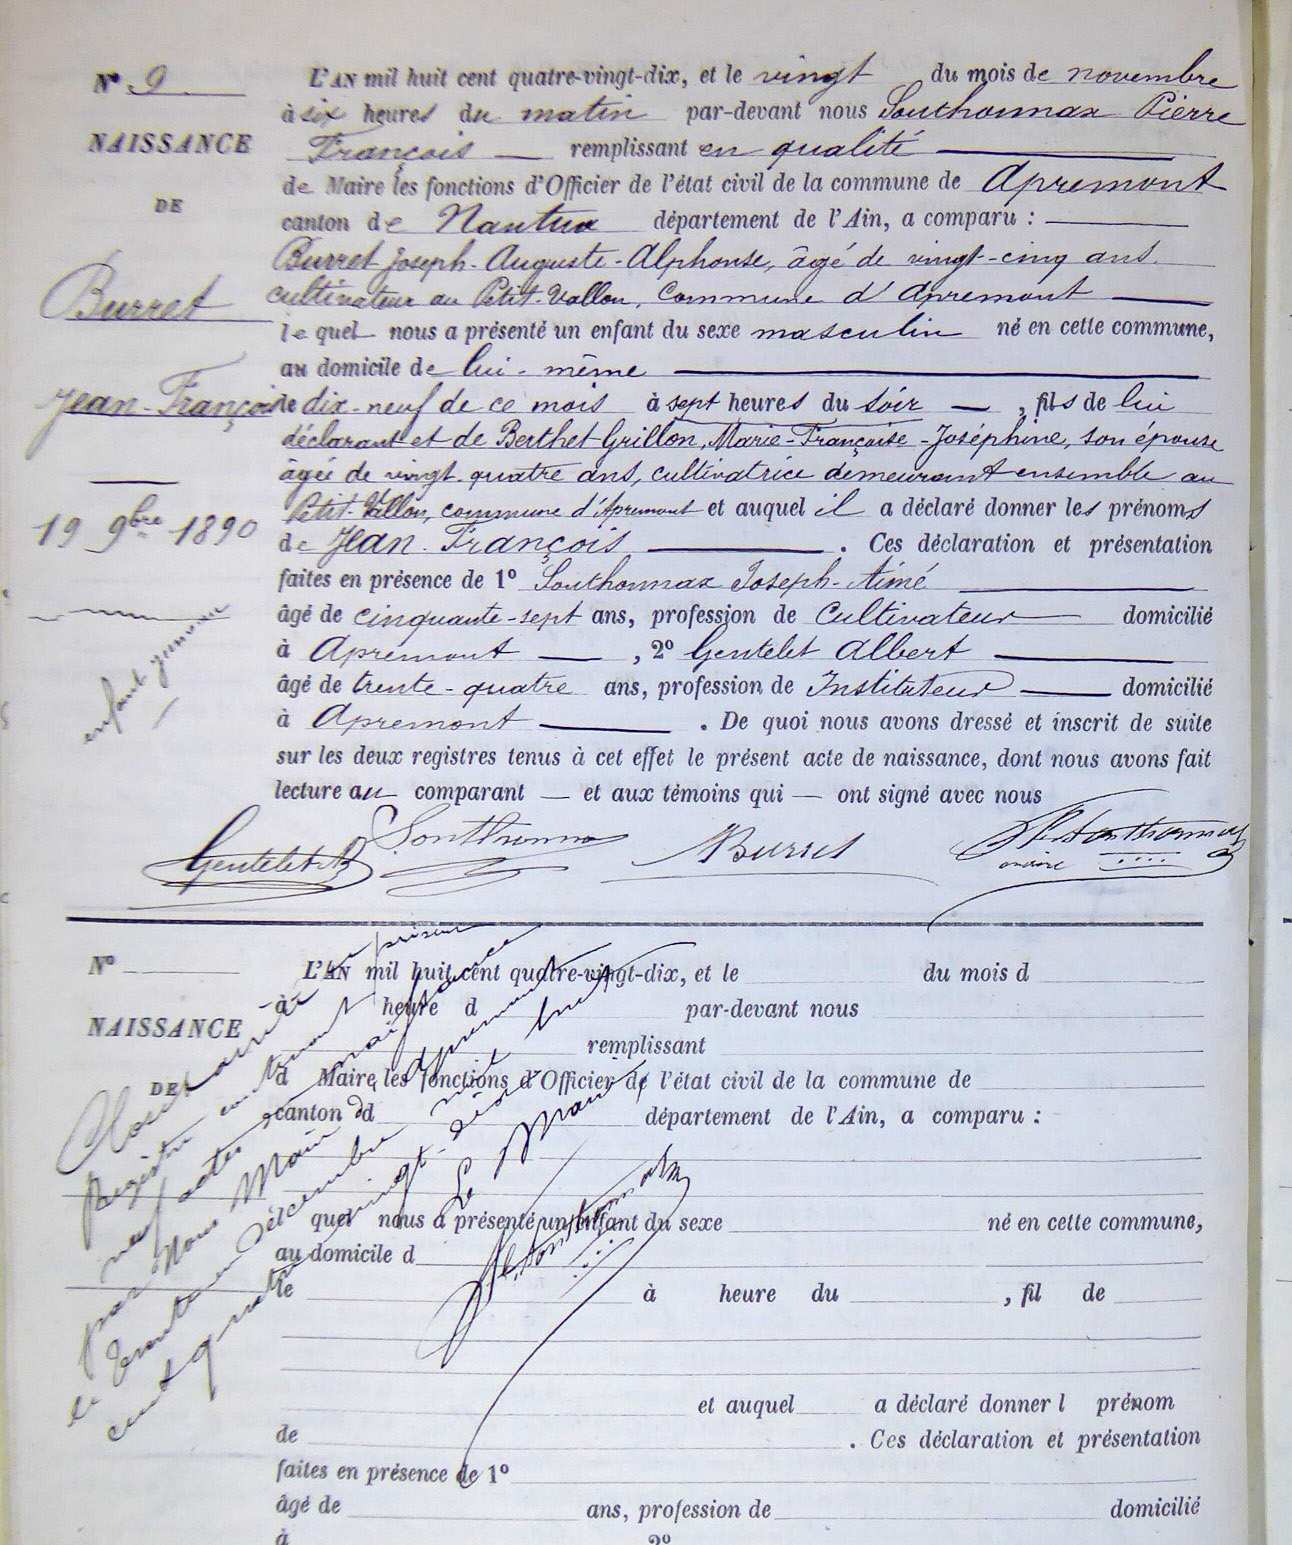 N° 9
NAISSANCE
DE
Burret
Jean-François
19 9bre 1890
enfant jumeau
L'AN mil huit cent quatre-vingt-dix, et le vingt du mois de novembre
à six heures du matin par-devant nous Southonnax Pierre
François — remplissant en qualité
de Maire les fonctions d'Officier de l'état civil de la commune de Apremont
canton de Nantua département de l'Ain, a comparu :
Burret Joseph-Auguste-Alphonse, âgé de vingt-cinq ans
cultivateur au Petit-Vallon, commune d'Apremont
le quel nous a présenté un enfant du sexe masculin né en cette commune,
au domicile de lui-même
le dix-neuf de ce mois à sept heures du soir — , fils de lui
déclarant et de Berthet-Grillon, Marie-Françoise-Joséphine, son épouse
âgée de vingt-quatre ans, cultivatrice demeurant ensemble au
Petit-Vallon, commune d'Apremont et auquel il a déclaré donner les prénoms
de Jean-François . Ces déclaration et présentation
faites en présence de 1° Southonnax Joseph-Aimé
âgé de cinquante-sept ans, profession de Cultivateur domicilié
à Apremont — , 2° Gentelet Albert
âgé de trente-quatre ans, profession de Instituteur domicilié
à Apremont . De quoi nous avons dressé et inscrit de suite
sur les deux registres tenus à cet effet le présent acte de naissance, dont nous avons fait
lecture au comparant — et aux témoins qui — ont signé avec nous
Gentelet A Southonna Burret Southonnax
maire
N°
NAISSANCE
DE
L'AN mil huit cent quatre-vingt-dix, et le du mois d
à heure d par-devant nous
remplissant
d Maire les fonctions d'Officier de l'état civil de la commune de
canton d département de l'Ain, a comparu :
quel nous a présenté un enfant du sexe né en cette commune,
au domicile d
le à heure du , fil de
et auquel a déclaré donner l prénom
de . Ces déclaration et présentation
faites en présence de 1°
âgé de ans, profession de domicilié
à 2°
Clos et arrêté le présent
Registre contenant
neuf actes de naissance
par Nous Maire d'Apremont
le trente un Décembre mil huit
cent quatre vingt-dix
Le Maire,
Southonnax